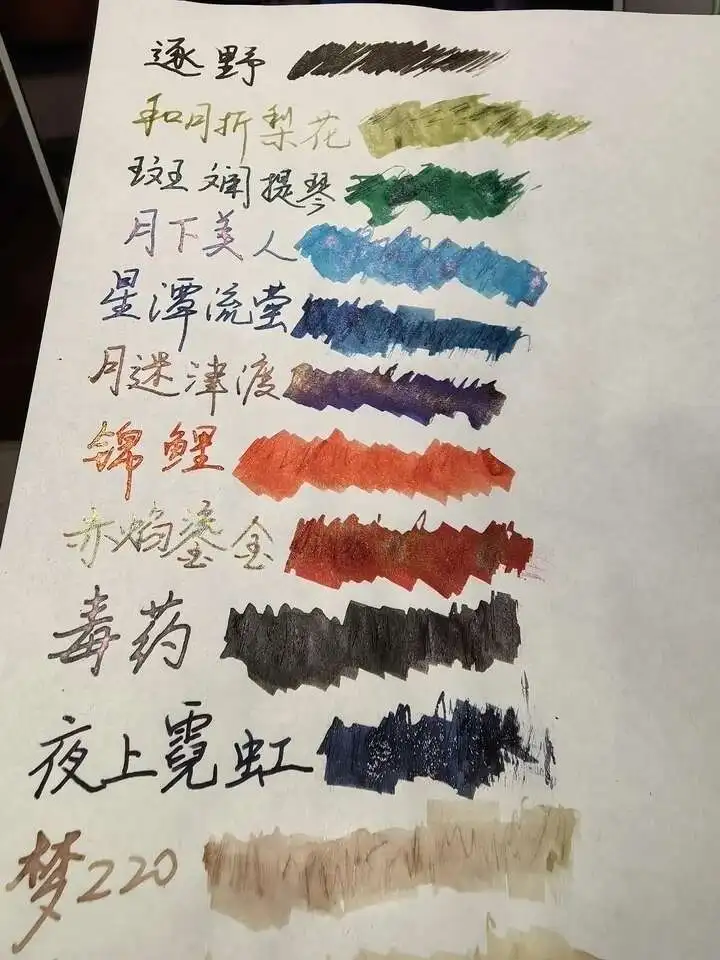 逐野
和月折梨花
斑斓提琴
月下美人
星潭流萤
月迷津渡
锦鲤
赤焰鎏金
毒药
夜上霓虹
梦220